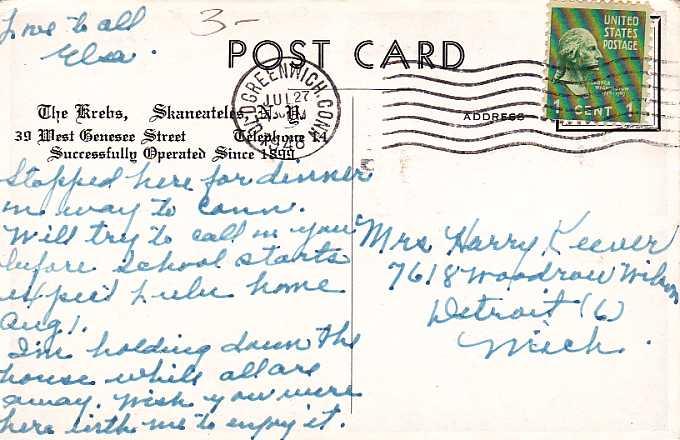 Love to all
Elsa.
3-
POST CARD
UNITED
STATES
POSTAGE
1 CENT 1
OLD GREENWICH, CONN.
JUL 27
1948
The Krebs, Skaneateles, N. Y.
39 West Genesee Street Telephone 14
Successfully Operated Since 1899
ADDRESS
Stopped here for dinner
on way to Conn.
Will try to call on you
before school starts
expect Lulu home
Aug 1.
I'm holding down the
house while all are
away. Wish you were
here with me to enjoy it.
Mrs Harry Keever
7618 Woodrow Wilson
Detroit (6)
Mich.